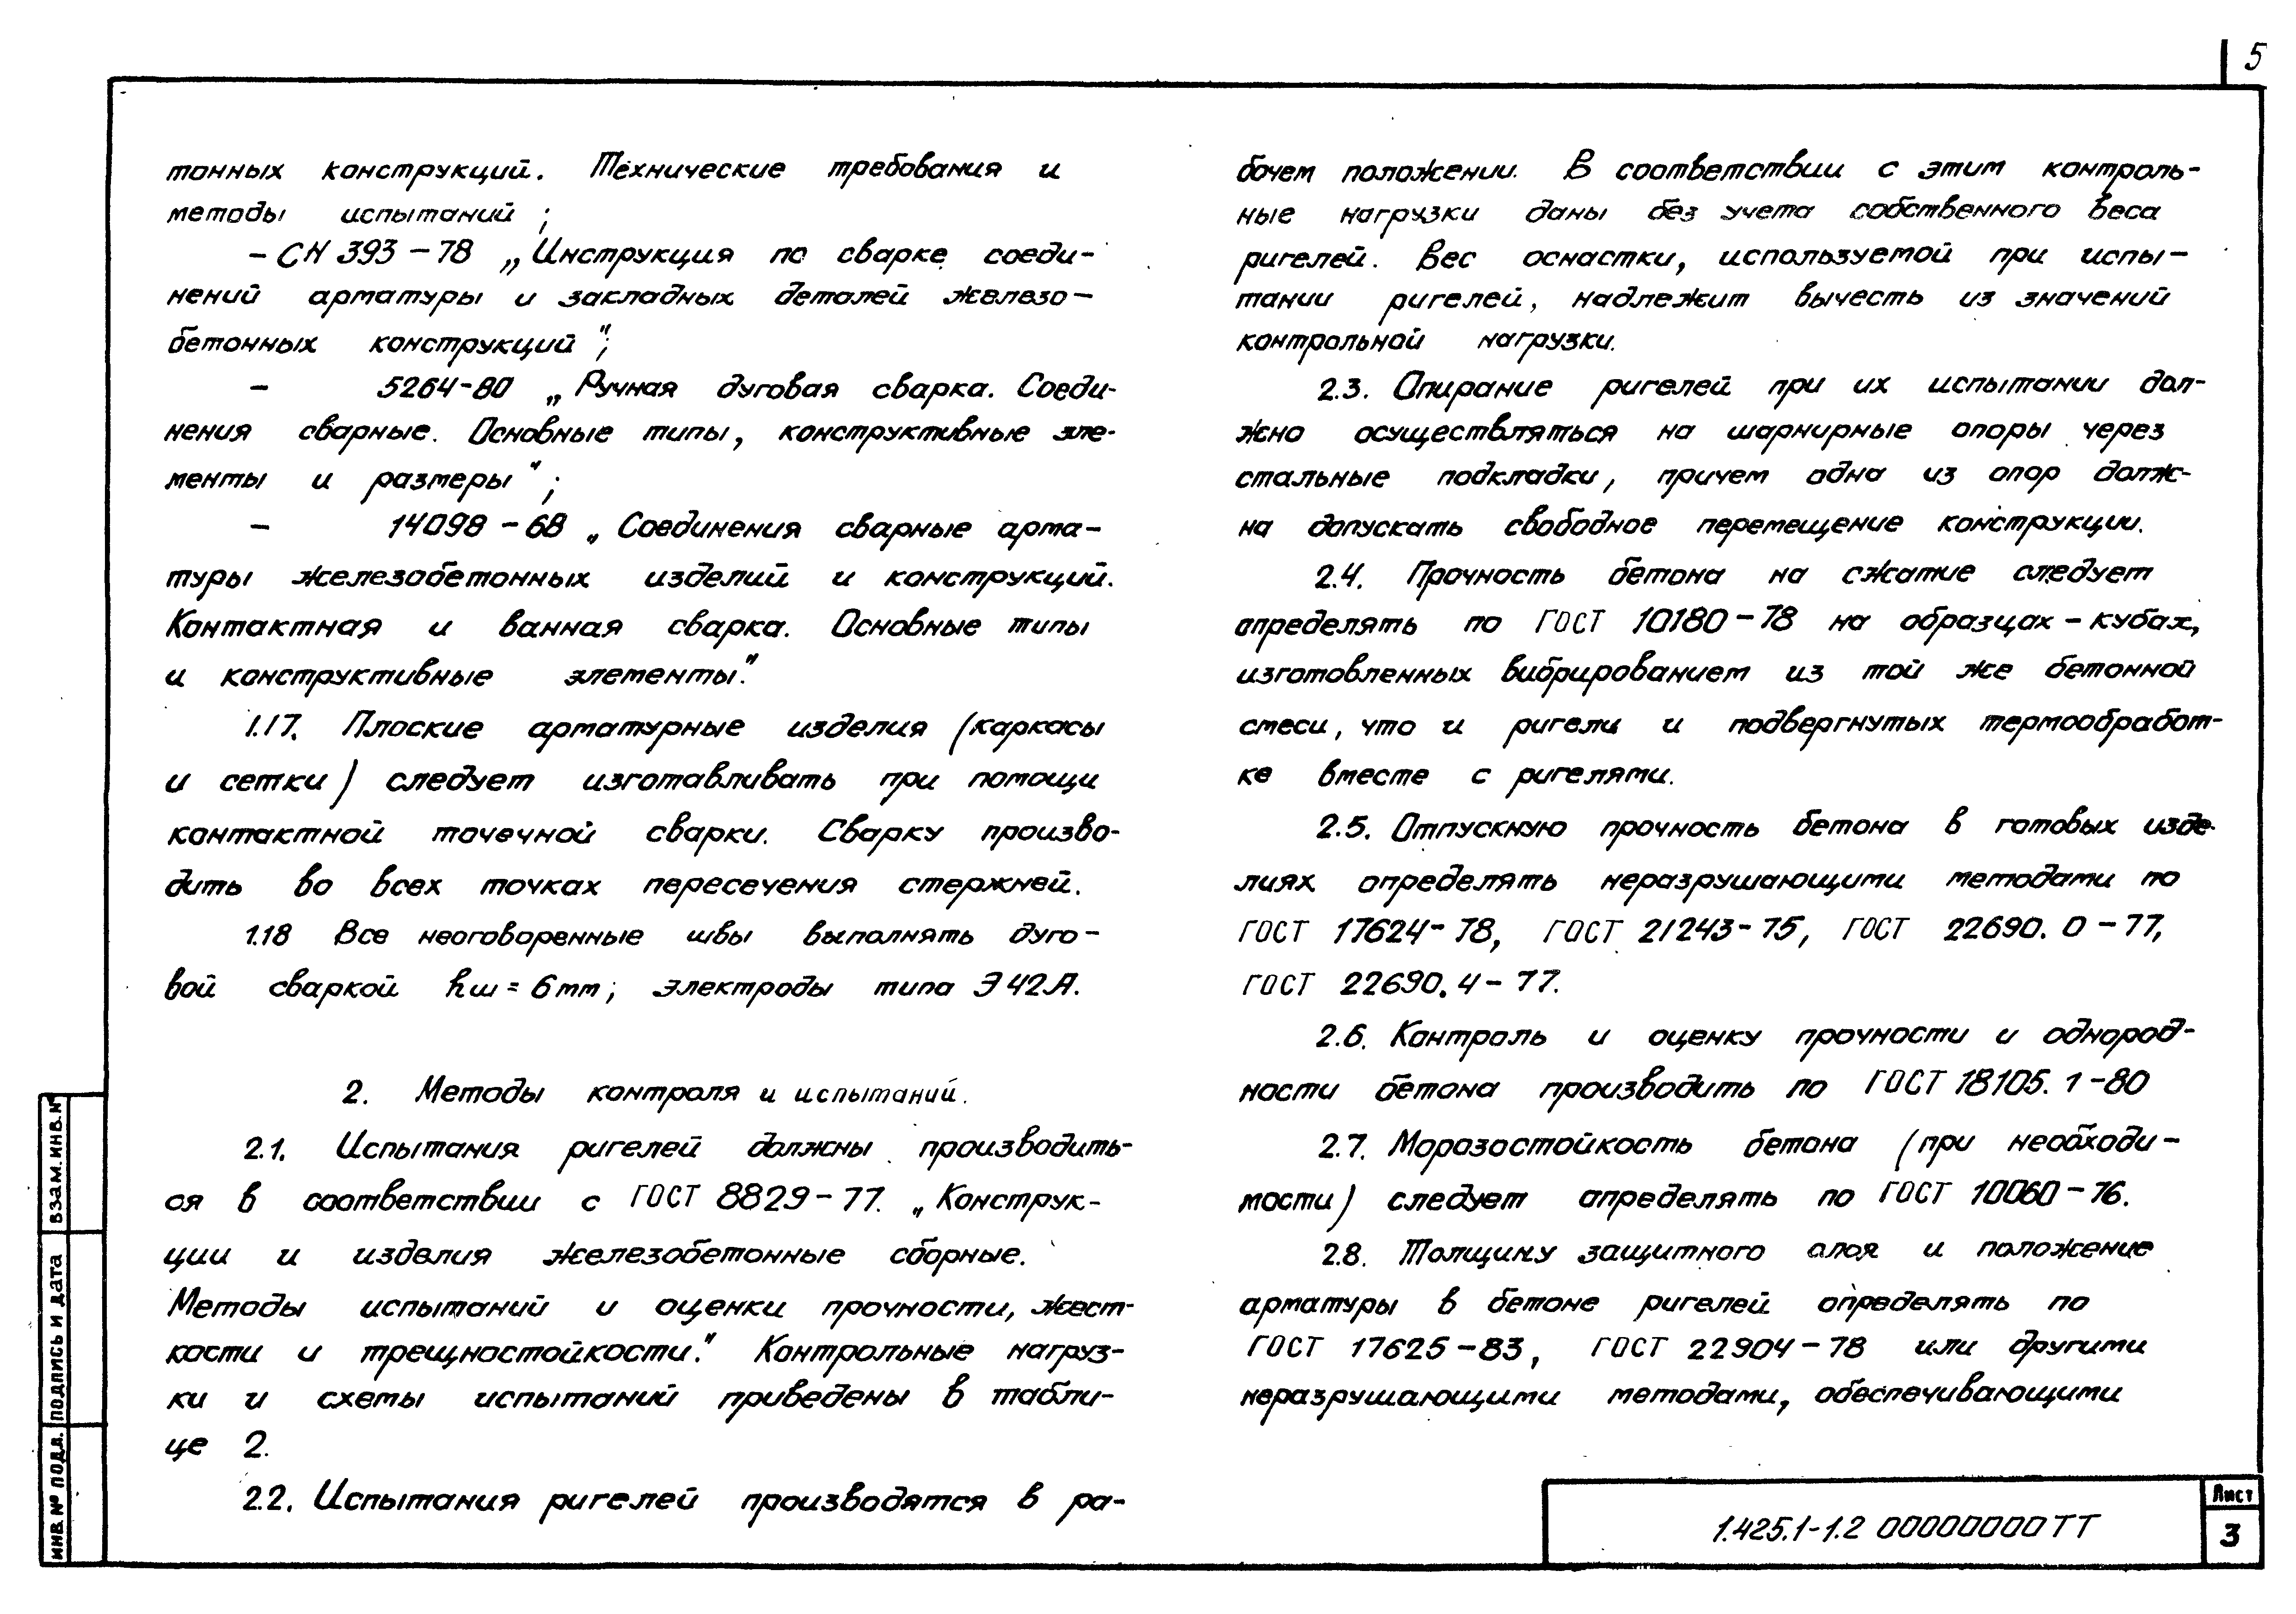 5
тонных конструкций. Технические требования и
методы испытаний;
- СН 393-78 „Инструкция по сварке соеди-
нений арматуры и закладных деталей железо-
бетонных конструкций";
- 5264-80 „Ручная дуговая сварка. Соеди-
нения сварные. Основные типы, конструктивные эле-
менты и размеры";
- 14098-68 „Соединения сварные арма-
туры железобетонных изделий и конструкций.
Контактная и ванная сварка. Основные типы
и конструктивные элементы."
1.17. Плоские арматурные изделия (каркасы
и сетки) следует изготавливать при помощи
контактной точечной сварки. Сварку произво-
дить во всех точках пересечения стержней.
1.18 Все неоговоренные швы выполнять дуго-
вой сваркой hш = 6мм; электроды типа Э42А.
2. Методы контроля и испытаний.
2.1. Испытания ригелей должны производить-
ся в соответствии с ГОСТ 8829-77. „Конструк-
ции и изделия железобетонные сборные.
Методы испытаний и оценки прочности, жест-
кости и трещностойкости." Контрольные нагруз-
ки и схемы испытаний приведены в табли-
це 2.
2.2. Испытания ригелей производятся в ра-
бочем положении. В соответствии с этим контроль-
ные нагрузки даны без учета собственного веса
ригелей. Вес оснастки, используемой при испы-
тании ригелей, надлежит вычесть из значений
контрольной нагрузки.
2.3. Опирание ригелей при их испытании дол-
жно осуществляться на шарнирные опоры через
стальные подкладки, причем одна из опор долж-
на допускать свободное перемещение конструкции.
2.4. Прочность бетона на сжатие следует
определять по ГОСТ 10180-78 на образцах-кубах,
изготовленных вибрированием из той же бетонной
смеси, что и ригели и подвергнутых термообработ-
ке вместе с ригелями.
2.5. Отпускную прочность бетона в готовых изде-
лиях определять неразрушающими методами по
ГОСТ 17624-78, ГОСТ 21243-75, ГОСТ 22690.0-77,
ГОСТ 22690.4-77.
2.6. Контроль и оценку прочности и однород-
ности бетона производить по ГОСТ 18105.1-80
2.7. Морозостойкость бетона (при необходи-
мости) следует определять по ГОСТ 10060-76.
2.8. Толщину защитного слоя и положение
арматуры в бетоне ригелей определять по
ГОСТ 17625-83, ГОСТ 22904-78 или другими
неразрушающими методами, обеспечивающими
ИНВ.№ ПОДЛ. ПОДПИСЬ И ДАТА ВЗАМ.ИНВ.№
1.425.1-1.2 00000000ТТ
Лист
3